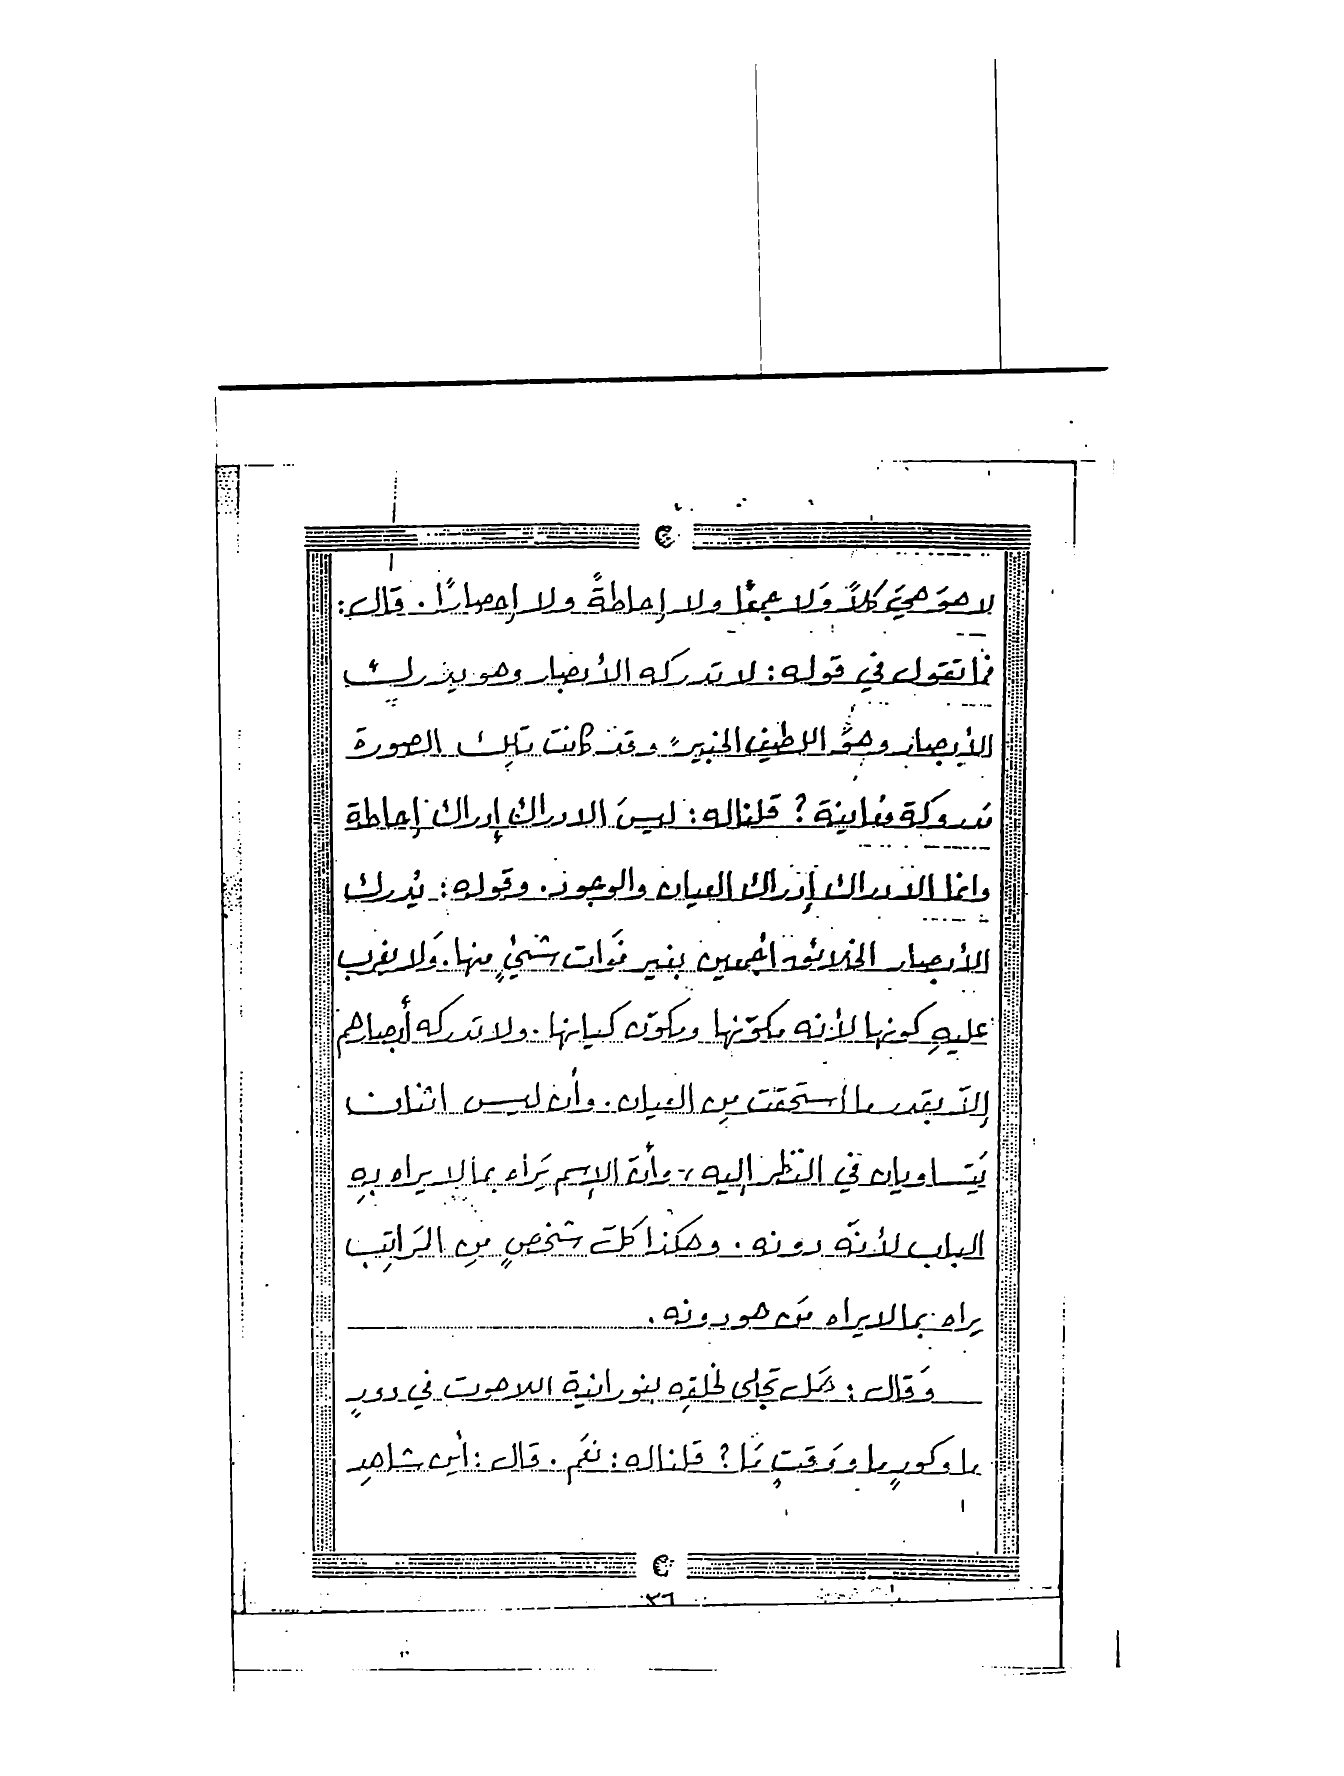 لا هوَ هيَ كلاً وَلا جمعًا ولا إحاطةً ولا إحصارًا . قال :
فما تقول في قوله : لا تدركه الأبصار وهو يدرك
الأبصار وهوَ اللطيف الخبير وقد كانت تلك الصورة
مدروكة معاينة ؟ قلنا له : ليسَ الادراك إدراك إحاطة
وانما الادراك إدراك العيان والوجود . وقوله : يُدرك
الأبصار الخلائق أجمعين بغير فوات شيءٍ منها . وَلا يغرب
عليهِ كونها لأنه مكوّنها ومكوّن كيانها . ولا تدركه أبصارهم
إلاّ بقدر ما استحقت مِن العيان . وأن ليس اثنان
يَتساويان في النظر إليه ، وأنّ الإسم يَراه بما لا يراه بهِ
الباب لأنّه دونه . وهكذا كلّ شخصٍ مِن المَراتِب
يراه بما لا يراه مَن هو دونه .
وَقال : هَل تجلى لخلقِه بنورانية اللاهوت في دورٍ
ما وكورٍ ما ووَقتٍ مَا ؟ قلنا له : نعَم . قال : أين شاهِد
٣٦